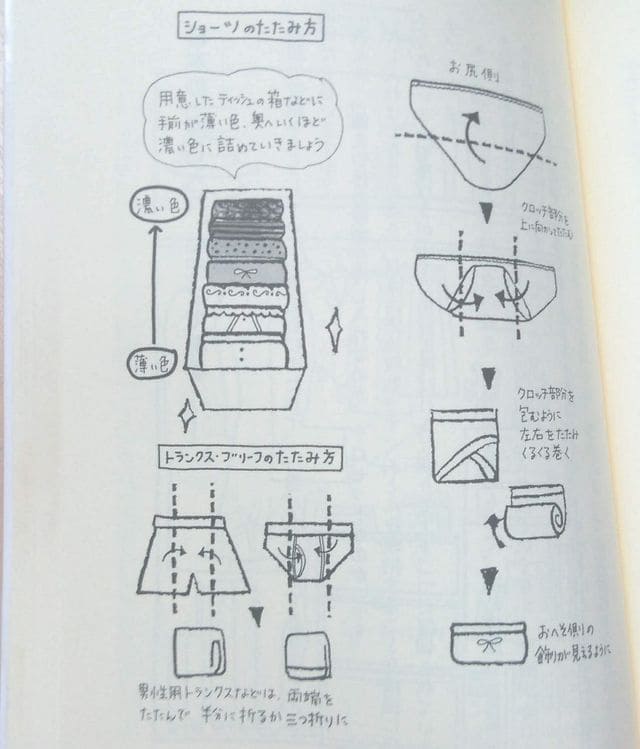 ショーツのたたみ方
用意したティッシュの箱などに
手前が薄い色、奥へいくほど
濃い色に詰めていきましょう
濃い色
薄い色
お尻側
クロッチ部分を
上に向かってたたむ
クロッチ部分を
包むように
左右をたたみ
くるくる巻く
おへそ側の
飾りが見えるように
トランクス・ブリーフのたたみ方
男性用トランクスなどは、両端を
たたんで 半分に折るか 三つ折りに